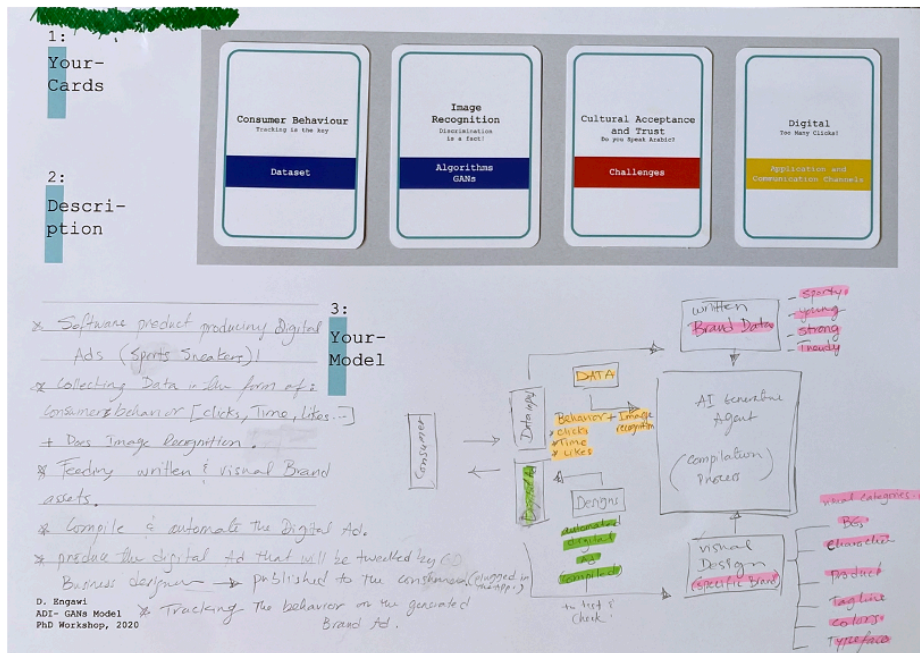 1:
Your-
Cards
Consumer Behaviour
Tracking is the key
Dataset
Image
Recognition
Discrimination
is a fact!
Algorithms
GANs
Cultural Acceptance
and Trust
Do you Speak Arabic?
Challenges
Digital
Too Many Clicks!
Application and
Communication Channels
2:
Descri-
ption
* Software product producing Digital
Ads (Sports Sneakers)!
* Collecting Data in the form of :
Consumers behavior [clicks, Time, Likes...]
+ Does Image Recognition.
* Feeding written & visual Brand
assets.
* Compile & automate The Digital Ad.
* produce the digital Ad that will be tweaked by
Business designer → published to the consumer. (plugged in
* Tracking The behavior on the generated
Brand Ad.
D. Engawi
ADI- GANs Model
PhD Workshop, 2020
3:
Your-
Model
Consumer
Data input
DATA
Behavior + Image
recognition
* clicks
* Time
* Likes
Designs
automated
digital
ad
compiled
to test &
Check!
written
Brand Data
- sporty
- young
- strong
- Trendy
AI Generative
Agent
(Compilation
Process)
visual
Design
(specific Brand)
visual categories
BG
character
product
Tagline
colors
Typeface